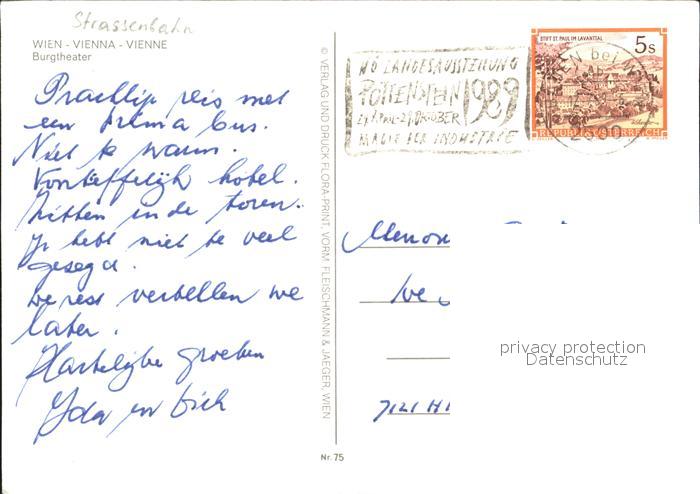 Strassenbahn
WIEN - VIENNA - VIENNE
Burgtheater
Prachtig reis met
een prima bus.
Niet te warm.
Vortreffelijk hotel.
Zitten in de toren.
Je hebt niet te veel
gezegd.
De rest vertellen we
later.
Hartelijke groeten
Ida en Dick
© VERLAG UND DRUCK FLORA-PRINT, VORM. FLEISCHMANN & JAEGER, WIEN
Nr. 75
NÖ LANDESAUSSTELLUNG
POTTENSTEIN 1989
29. OKTOBER
MAGIE DER INDUSTRIE
STIFT ST. PAUL IM LAVANTTAL
5s
REPUBLIK ÖSTERREICH
bei
Menon
We
7121 H
privacy protection
Datenschutz